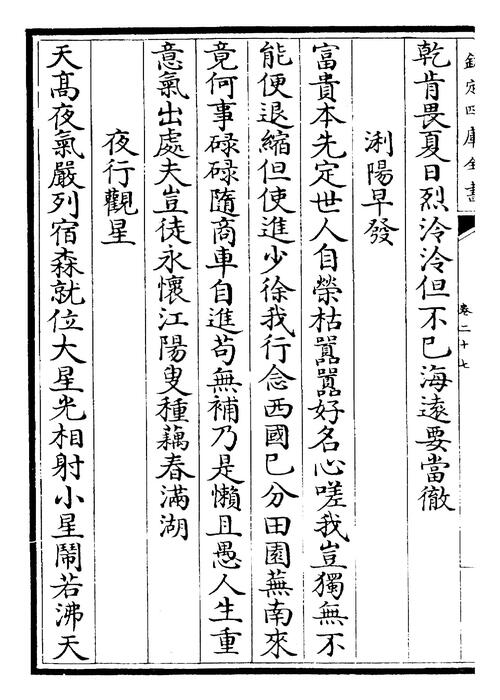 欽定四庫全書
卷二十七
乾肯畏夏日烈泠泠但不已海遠要當徹
浰陽早發
富貴本先定世人自榮枯囂囂好名心嗟我豈獨無不
能便退縮但使進少徐我行念西國已分田園蕪南來
竟何事碌碌隨商車自進苟無補乃是懶且愚人生重
意氣出處夫豈徒永懷江陽叟種藕春滿湖
夜行觀星
天髙夜氣嚴列宿森就位大星光相射小星鬧若沸天